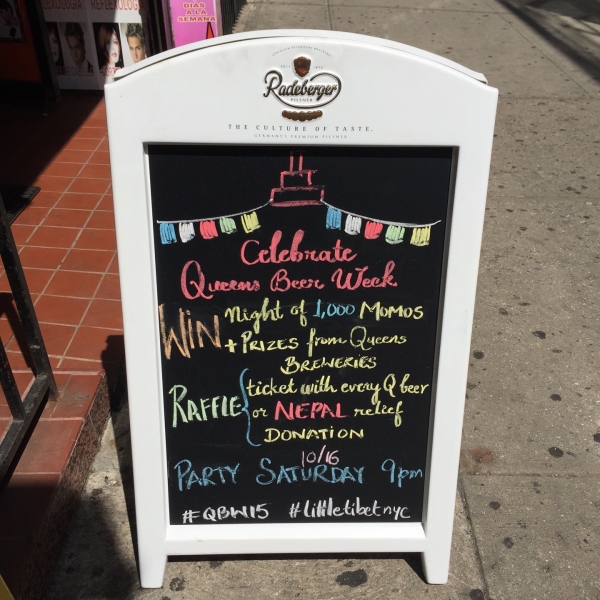 REFLEXOLOGIA
DIAS
A LA
SEMANA
Radeberger
PILSNER
THE CULTURE OF TASTE.
GERMANY'S PREMIUM PILSNER
Celebrate
Queens Beer Week
WIN Night of 1,000 MOMOS
+ PRIZES from Queens
BREWERIES
RAFFLE { ticket with every Q beer
or NEPAL relief
DONATION
10/16
PARTY SATURDAY 9pm
#QBW15 #littletibetnyc